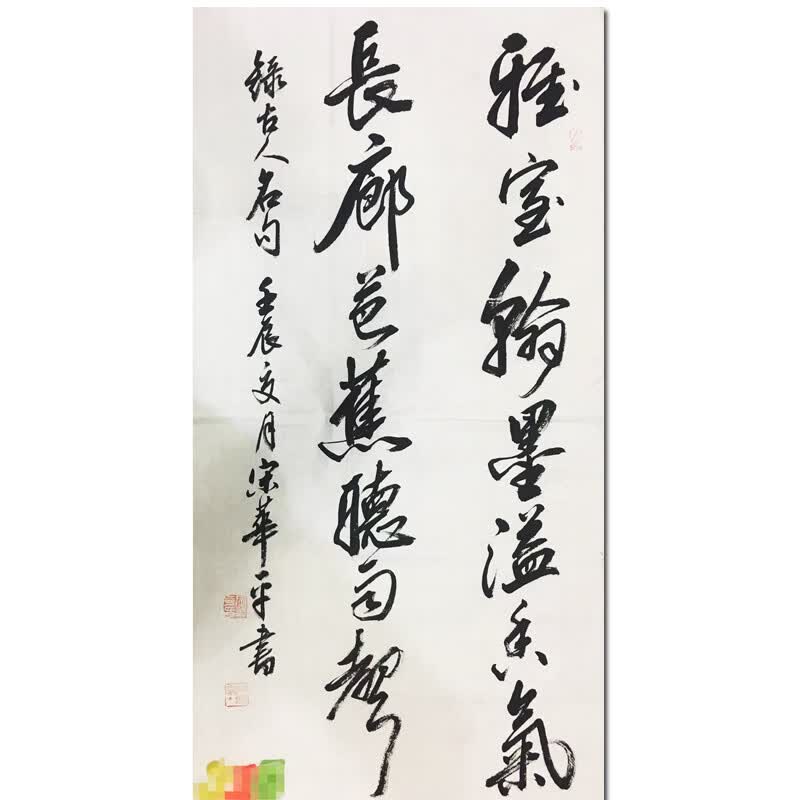 雅室翰墨溢香氣
長廊芭蕉聽雨聲
錄古人名句 壬辰夏月宋華平書